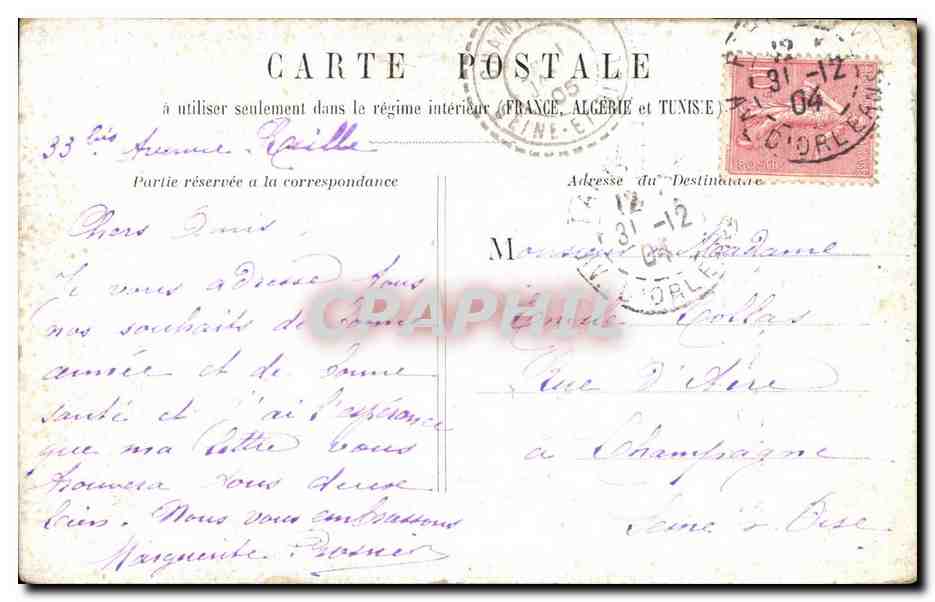 CARTE POSTALE
à utiliser seulement dans le régime intérieur (FRANCE, ALGÉRIE et TUNISIE)
33 bis Avenue Reille
Partie réservée a la correspondance
Chers Amis
Je vous adresse tous
nos souhaits de bonne
année et de bonne
santé et j'ai l'espérance
que ma lettre vous
trouvera tous deux
bien. Nous vous embrassons
Marguerite
Adresse du Destinataire
Monsieur Madame
Emile Collas
Rue
à Champagne
Seine & Oise
31 -12
04
D'ORLEANS
12
31 -12
04
D'ORLEANS
05
SEINE-ET-
10
CRAPHIL